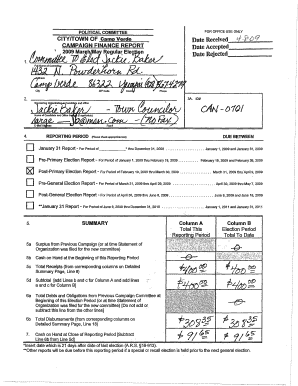 POLITICAL COMMITTEE
CITY/TOWN OF Camp Verde
CAMPAIGN FINANCE REPORT
2009 March/May Regular Election
FOR OFFICE USE ONLY
Date Received 4-8-09
Date Accepted
Date Rejected
1. Committee To Elect Jackie Baker
1432 N. Powderhorn Rd.
Camp Verde 86322 Yavapai
2. Jackie Baker - Town Councilor
3A. ID#
CAN-0701
4. REPORTING PERIOD DUE BETWEEN
January 31 Report - For Period of thru December 31, 2008 January 1, 2009 and January 31, 2009
Pre-Primary Election Report - For Period of January 1, 2009 thru February 18, 2009
Post-Primary Election Report - For Period of February 19, 2009 thru March 30, 2009
Pre-General Election Report - For Period of
Post-General Election Report - For Period of
**January 31, 2010 Report - For Period of
5. SUMMARY
Column A
Total This
Reporting Period
Column B
Election Period
Total To Date
5a Surplus from Previous Campaign (or at time Statement of
Organization was filed for the new committee)
5b Cash on Hand at the Beginning of this Reporting Period
5c Total Receipts (from corresponding columns on Detailed
Summary Page, Line 8) $400.00 $400.00
5d Subtotal (add Lines b and c for Column A and add lines
a and c for Column B) $400.00 $400.00
6a Total Debts and Obligations from Previous Campaign Committee at
Beginning of this Election Period (or at time Statement of
Organization was filed for the new committee) (Do not add or
subtract this line from the other lines)
6b Total Disbursements (from corresponding columns on
Detailed Summary Page, Line 18) $308.35 $308.35
7. Cash on Hand at Close of Reporting Period [Subtract
Line 6b from Line 5d] $91.65 $91.65
*Insert date which is 21 days after date of last election (A.R.S. §16-913).
*Other reports will be due before this reporting period if a special or recall election is held prior to the next general election.